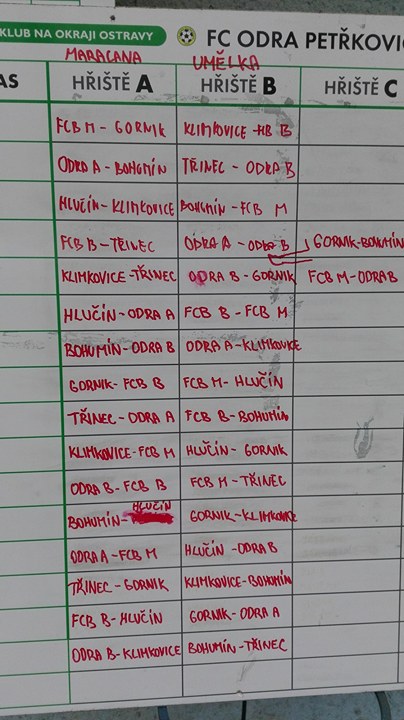 KLUB NA OKRAJI OSTRAVY FC ODRA PETŘKOVIC
MARACANA UMĚLKA
AS HŘIŠTĚ A HŘIŠTĚ B HŘIŠTĚ C
FCB M - GORNIK KLIMKOVICE - B
ODRA A - BOHUMÍN TŘINEC - ODRA B
HLUČÍN - KLIMKOVICE BOHUMÍN - FCB M
FCB B - TŘINEC ODRA A - ODRA B GORNIK - BOHUMÍN
KLIMKOVICE - TŘINEC ODRA B - GORNIK FCB M - ODRA B
HLUČÍN - ODRA A FCB B - FCB M
BOHUMÍN - ODRA B ODRA A - KLIMKOVICE
GORNIK - FCB B FCB M - HLUČÍN
TŘINEC - ODRA A FCB B - BOHUMÍN
KLIMKOVICE - FCB M HLUČÍN - GORNIK
ODRA B - FCB B FCB M - TŘINEC
BOHUMÍN - HLUČÍN GORNIK - KLIMKOVICE
ODRA A - FCB M HLUČÍN - ODRA B
TŘINEC - GORNIK KLIMKOVICE - BOHUMÍN
FCB B - HLUČÍN GORNIK - ODRA A
ODRA B - KLIMKOVICE BOHUMÍN - TŘINEC